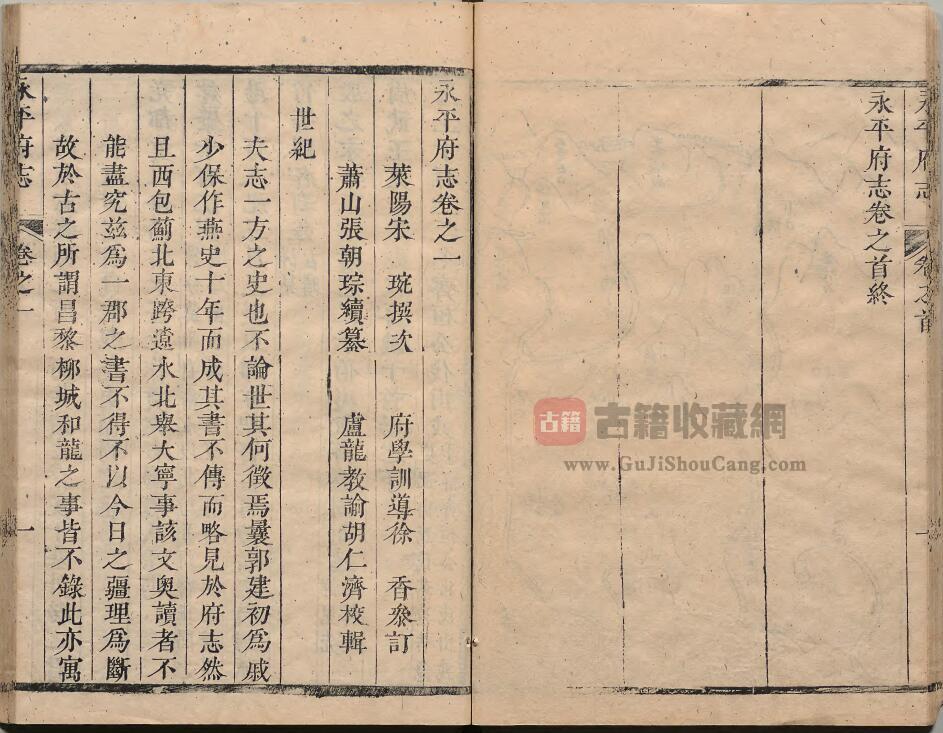 永平府志
卷之首
一
永平府志卷之首終
古籍
古籍收藏網
www.GuJiShouCang.com
永平府志卷之一
萊陽宋　琬撰次　府學訓導徐　香叅訂
蕭山張朝琮續纂　盧龍教諭胡仁濟校輯
世紀
夫志一方之史也不論世其何徵焉曩郭建初爲戚
少保作燕史十年而成其書不傳而略見於府志然
且西包薊北東跨遼水北舉大寧事該文奥讀者不
能盡究兹爲一郡之書不得不以今日之疆理爲斷
故於古之所謂昌黎柳城和龍之事皆不錄此亦寓
永平府志
卷之一
一